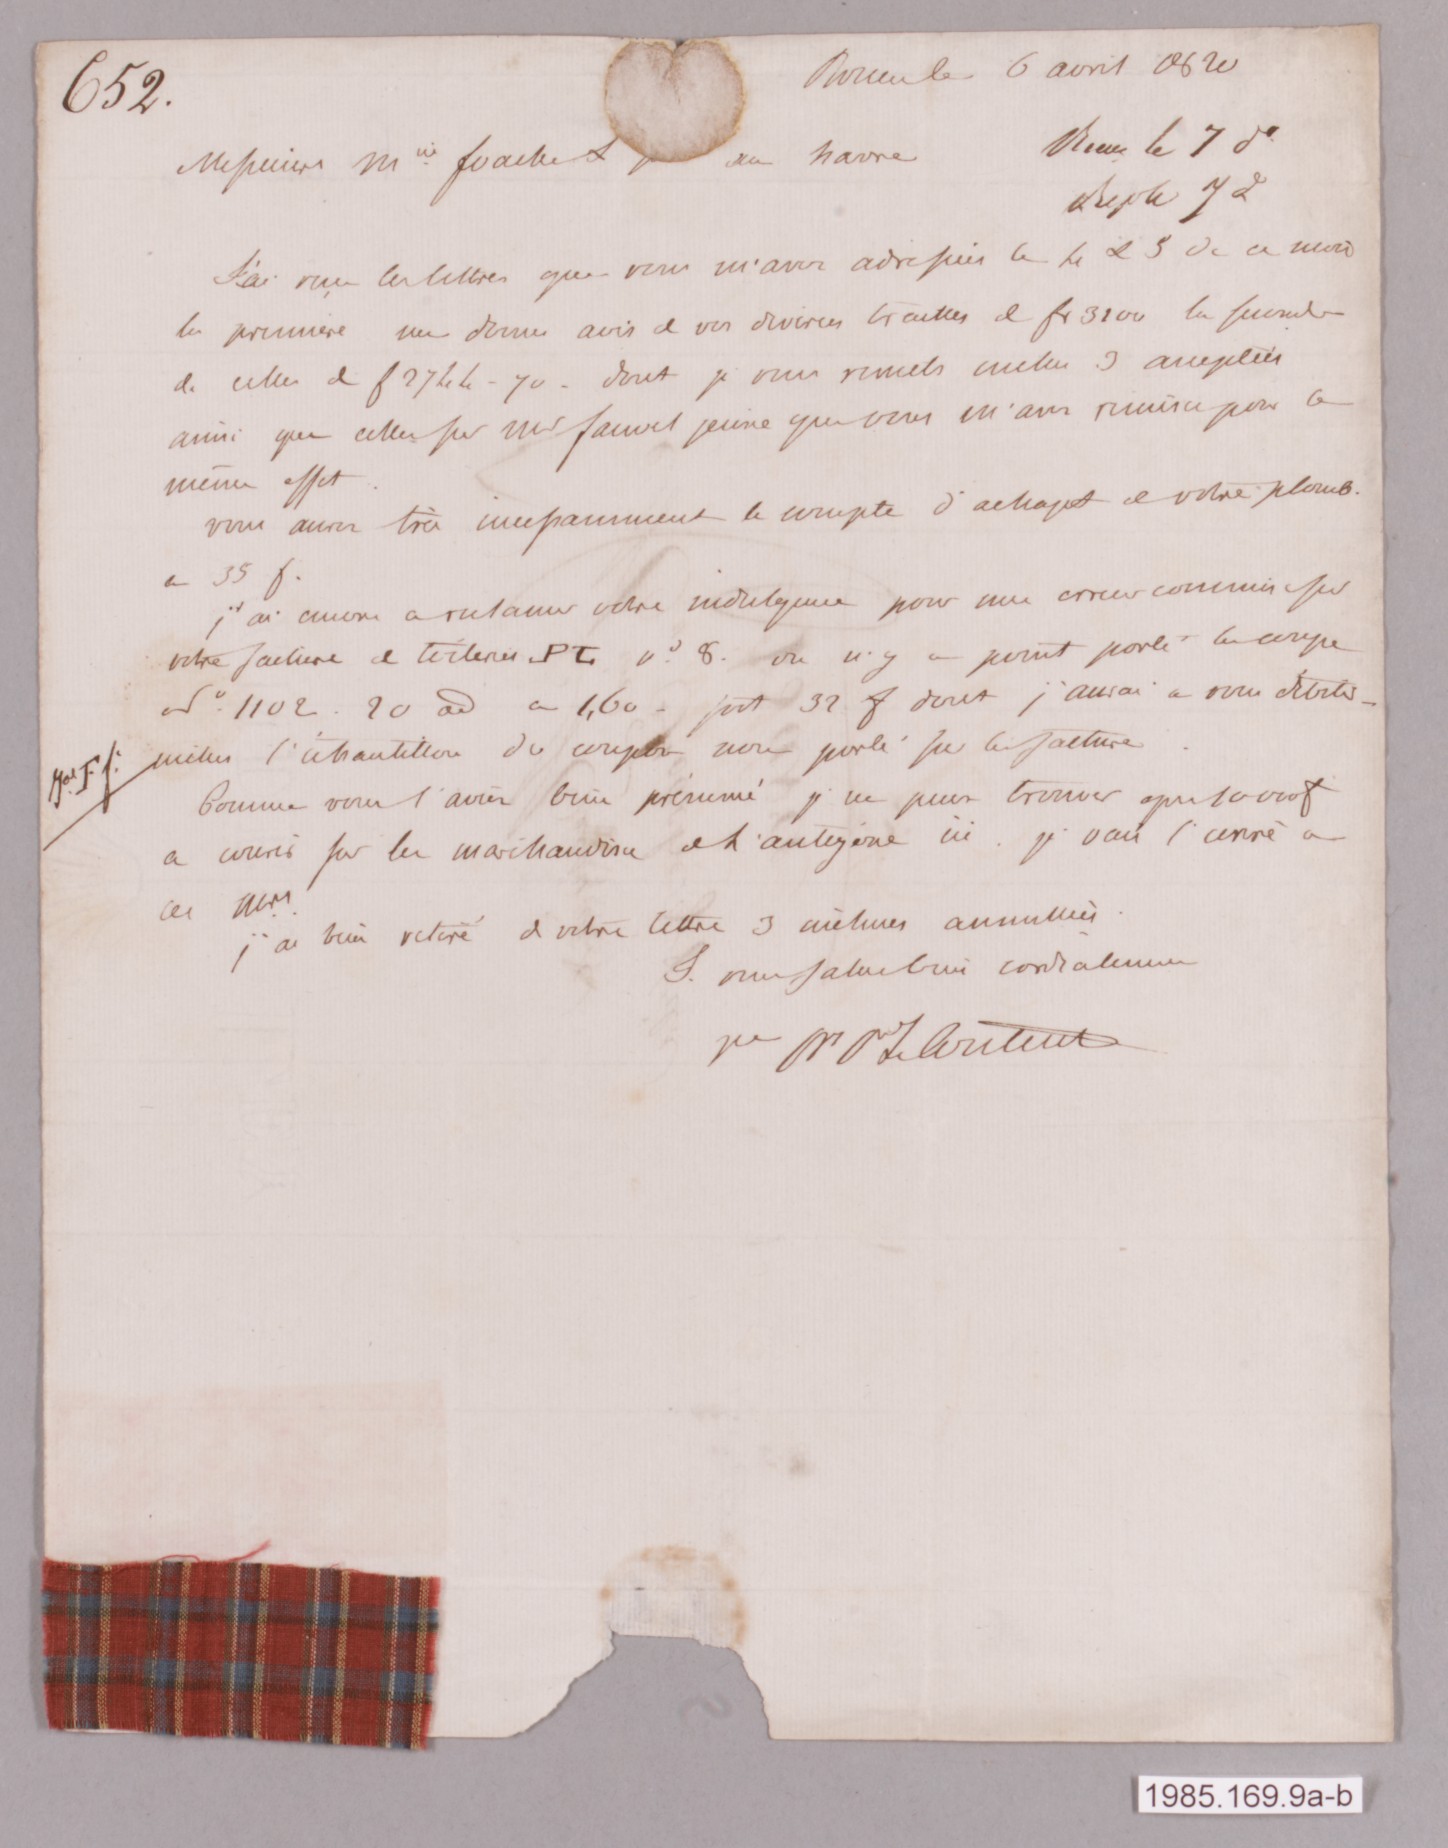 652.
Rouen le 6 avril 1820
Messieurs M.ⁱⁿ foache & au havre
Recue le 7 do
Rep le 7 do
J'ai reçu les lettres que vous m'avez adressées le 4 & 5 de ce mois
la premiere me donne avis de vos diverses traittes de fr 3100 la seconde
de celles de f 2744 - 70 - dont je vous remets incluses 3 acceptées
ainsi que celles sur Mr fauvel jeune que vous m'avez remise pour le
même effet.
vous aurez très incessamment le compte d'achapt de votre plomb.
a 35 f.
j'ai encore a reclamer votre indulgence pour une erreur commise sur
votre facture de toileries PT n° 8. ou n'y a point porté la coupe
n° 1102. 20 a 1,60 - soit 32 f dont j'aurai a vous débiter -
inclus l'échantillon du coupon non porté sur la facture.
Comme vous l'aviez bien présumé je ne puis trouver
a couvrir sur les marchandises de l'antigone ici. je vais l'ecrire a
ces Mrs.
j'ai bien retiré de votre lettre 3 mêmes annullées.
J. vous salue bien cordialement
pr Pr Le Content
1985.169.9a-b